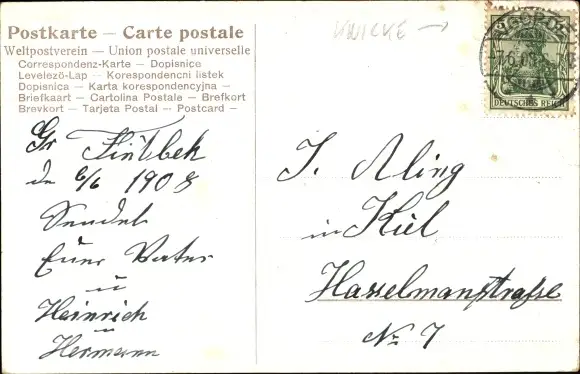 Postkarte – Carte postale
Weltpostverein – Union postale universelle
Correspondenz-Karte – Dopisnice
Levelező-Lap – Korespondencni listek
Dopisnica – Karta korespondencyjna –
Briefkaart – Cartolina Postale – Brefkort
Brevkort – Tarjeta Postal – Postcard –
KNICKE →
DEUTSCHES REICH
Gr Flintbek
de 6/6 1908
Sendet
Euer Vater
u
Heinrich
u
Hermann
J. Aling
in Kiel
Hasselmanstraße
No 7